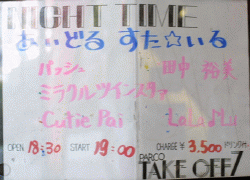 NIGHT TIME
あいどる すた☆いる
パッシュ 田中 裕美
ミラクルツインスター
Cutie Pai LoLu♪Lu
OPEN 18:30 START 19:00 CHARGE ¥3,500
PARCO
TAKE OFF7